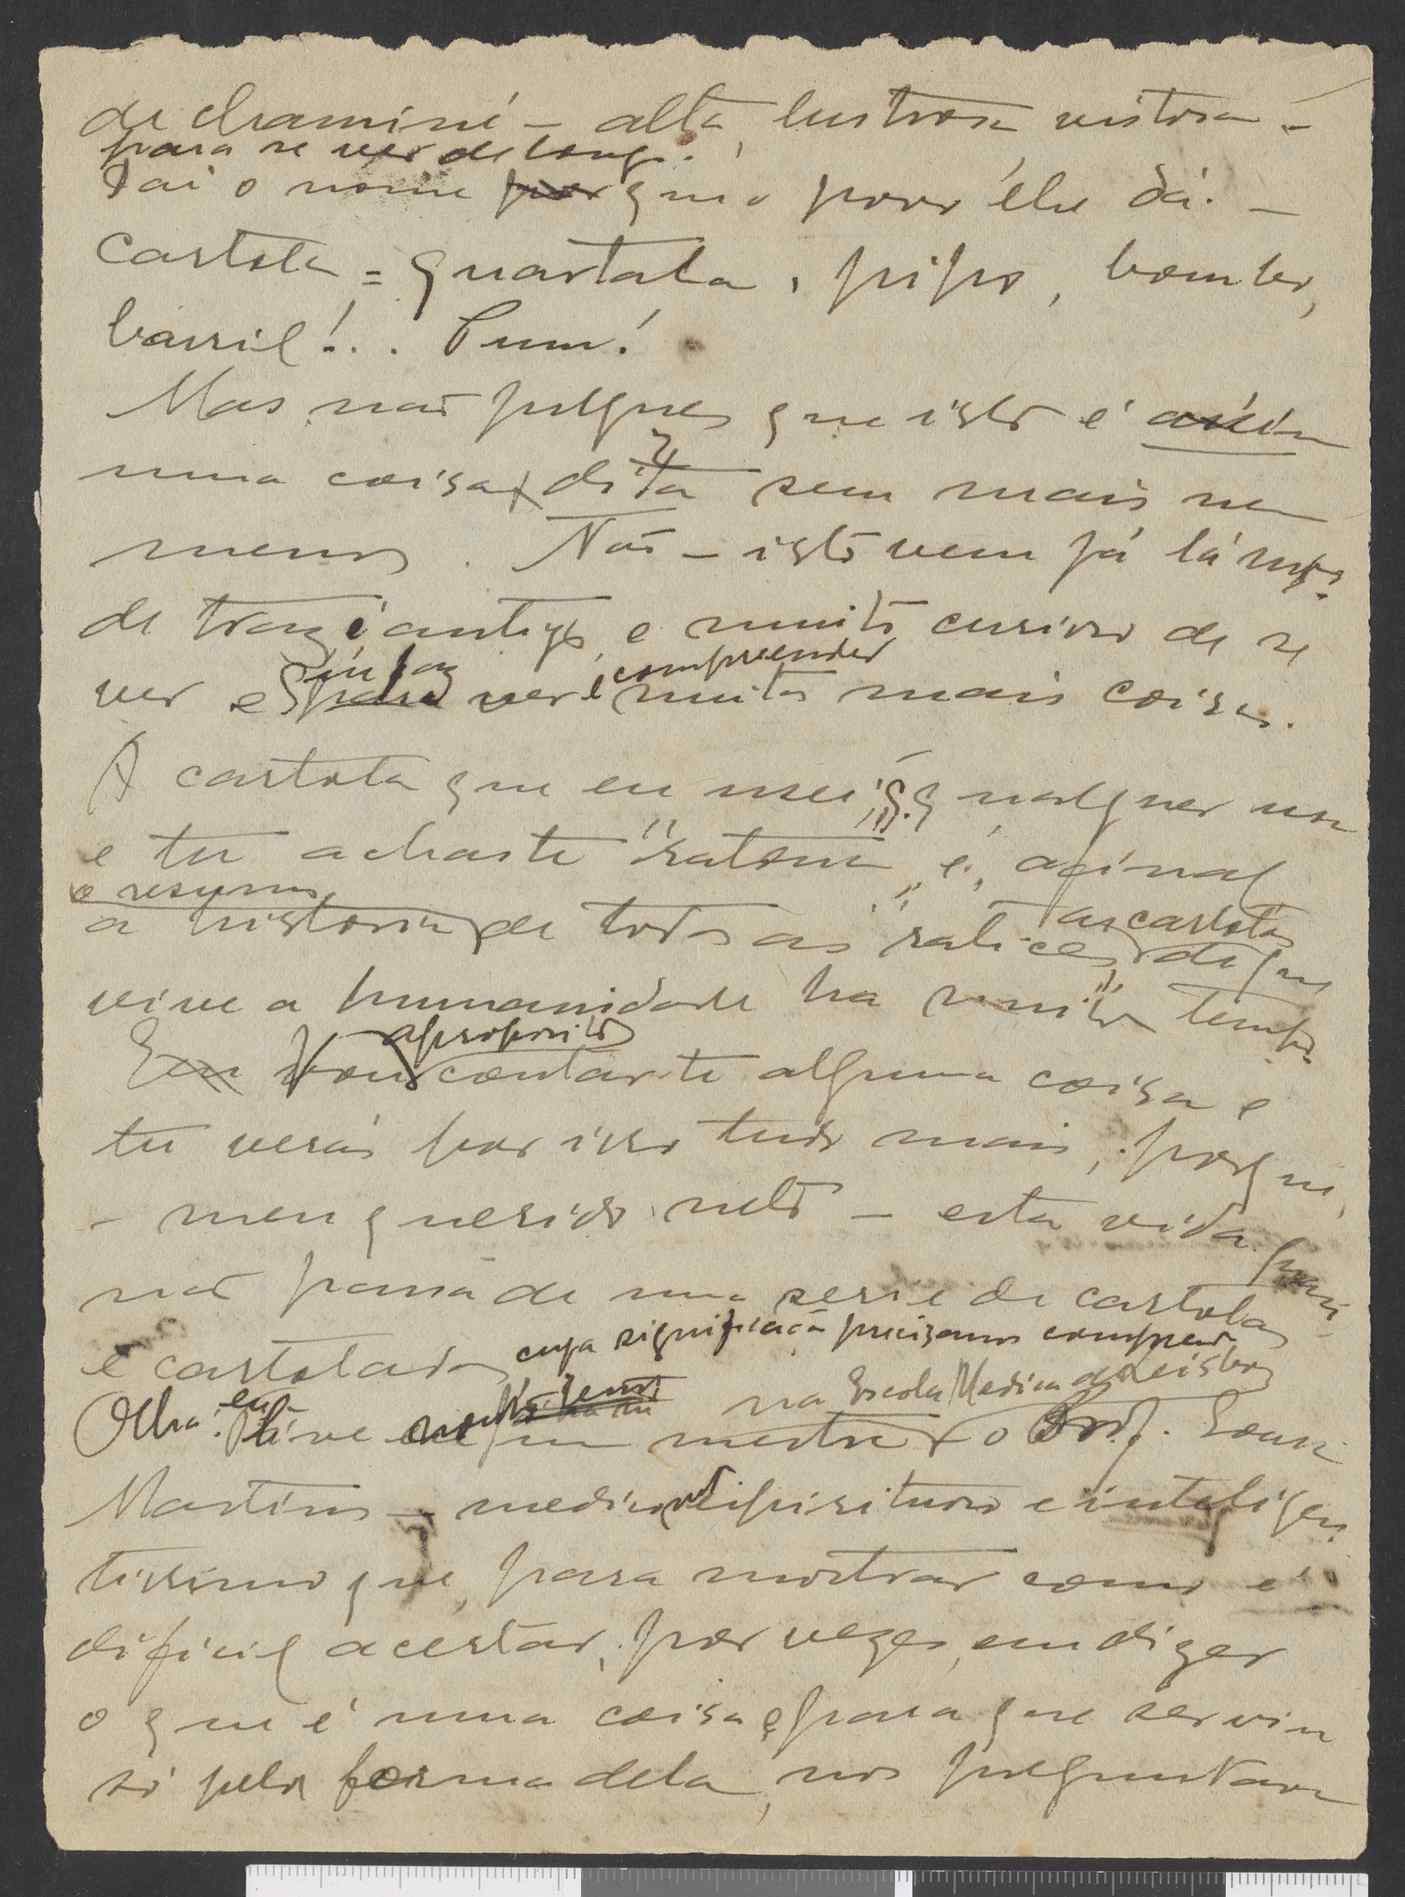 de chaminé – alta, lustrosa vistosa –
para se ver de longe.
Daí o nome por que o povo éle dá. –
Cartola = quartola, pipo, bombo,
barril!.. Pum!
Mas não julgues que isto é assim
uma coisa dita sem mais nem
menos. Não – isto vem já lá
de traz é antigo, e muito curioso de se
ver e
compreender
para ver muitas mais coisas.
A cartola que eu usei, qualquer usa
e tu achaste "ratona", é, afinal
o resumo
a historia de todas as "ratices",
as cartolas
de que
vive a humanidade ha muito tempo
aproposito
Eu Vou contar-te alguma coisa e
tu verás por isso tudo mais, porque,
– meu querido neto – esta vida
não passa de uma serie de cartolas
e cartoladas cuja significação precisamos compreender
na Escola Medica de Lisboa
Olha: eu tive um mestre o Prof. Sousa
Martins – medico espirituoso e inteligen-
tissimo que, para mostrar como é
dificil acertar, por vezes, em dizer
o que é uma coisa e para que servia
só pela forma dela, nos preguntava